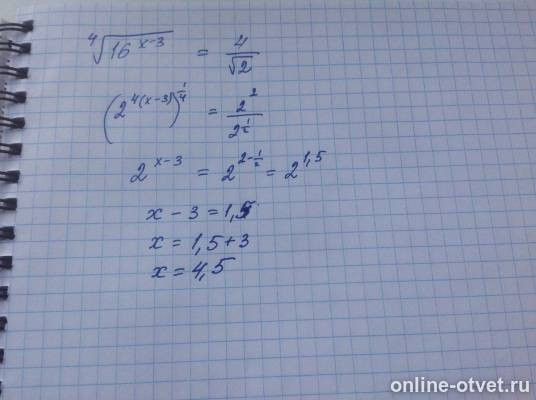 ⁴√(16^(x-3)) = 4/√2
(2^(4(x-3)))^(1/4) = 2^2/2^(1/2)
2^(x-3) = 2^(2-1/2) = 2^(1,5)
x - 3 = 1,5
x = 1,5 + 3
x = 4,5
online-otvet.ru